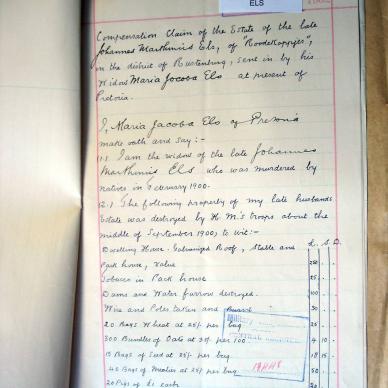 ELS
Compensation Claim of the Estate of the late
Johannes Marthinus Els, of "Roodekoppjes",
in the district of Rustenburg, sent in by his
Widow Maria Jacoba Els at present of
Pretoria.
I, Maria Jacoba Els of Pretoria
make oath and say:-
1.) I am the widow of the late Johannes
Marthinus Els who was murdered by
natives in February 1900.
2.) The following property of my late husbands
Estate was destroyed by H.M's troops about the
middle of September 1900, to wit:-
Dwelling House Galvanized Roof, Stable and
£. S. D.
Pack house, Value
Tobacco in Pack house
Dams and Water furrow destroyed.
Wire and Poles taken and
20 Bags Wheat at 25/- per bag
300 Bundles of Oats at per 100.
15 Bags of Seed at 25/- per bag
40 Bags of Mealies at 25/- per bag
20 Pigs at £1 each